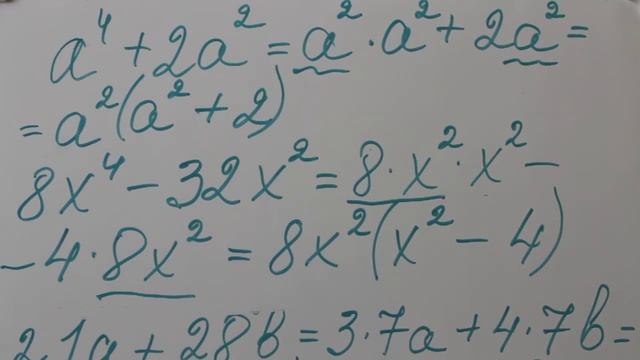 a⁴ + 2a² = a² · a² + 2a² =
= a²(a² + 2)
8x⁴ − 32x² = 8 · x² · x² −
− 4 · 8x² = 8x²(x² − 4)
21a + 28b = 3·7a + 4·7b =